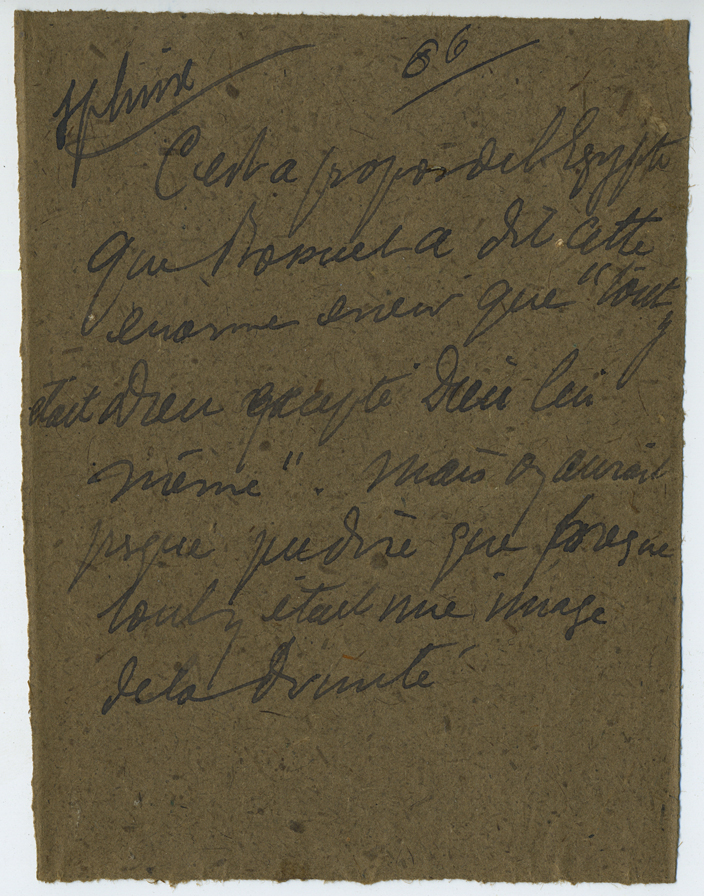 Sphinx 66
C'est a propos de l'Egypte
que Bossuet a dit cette
enorme erreur que "tout
y
était Dieu excepté Dieu lui
même". Mais on aurait
presque pu dire que presque
tout y était une image
de la Divinité